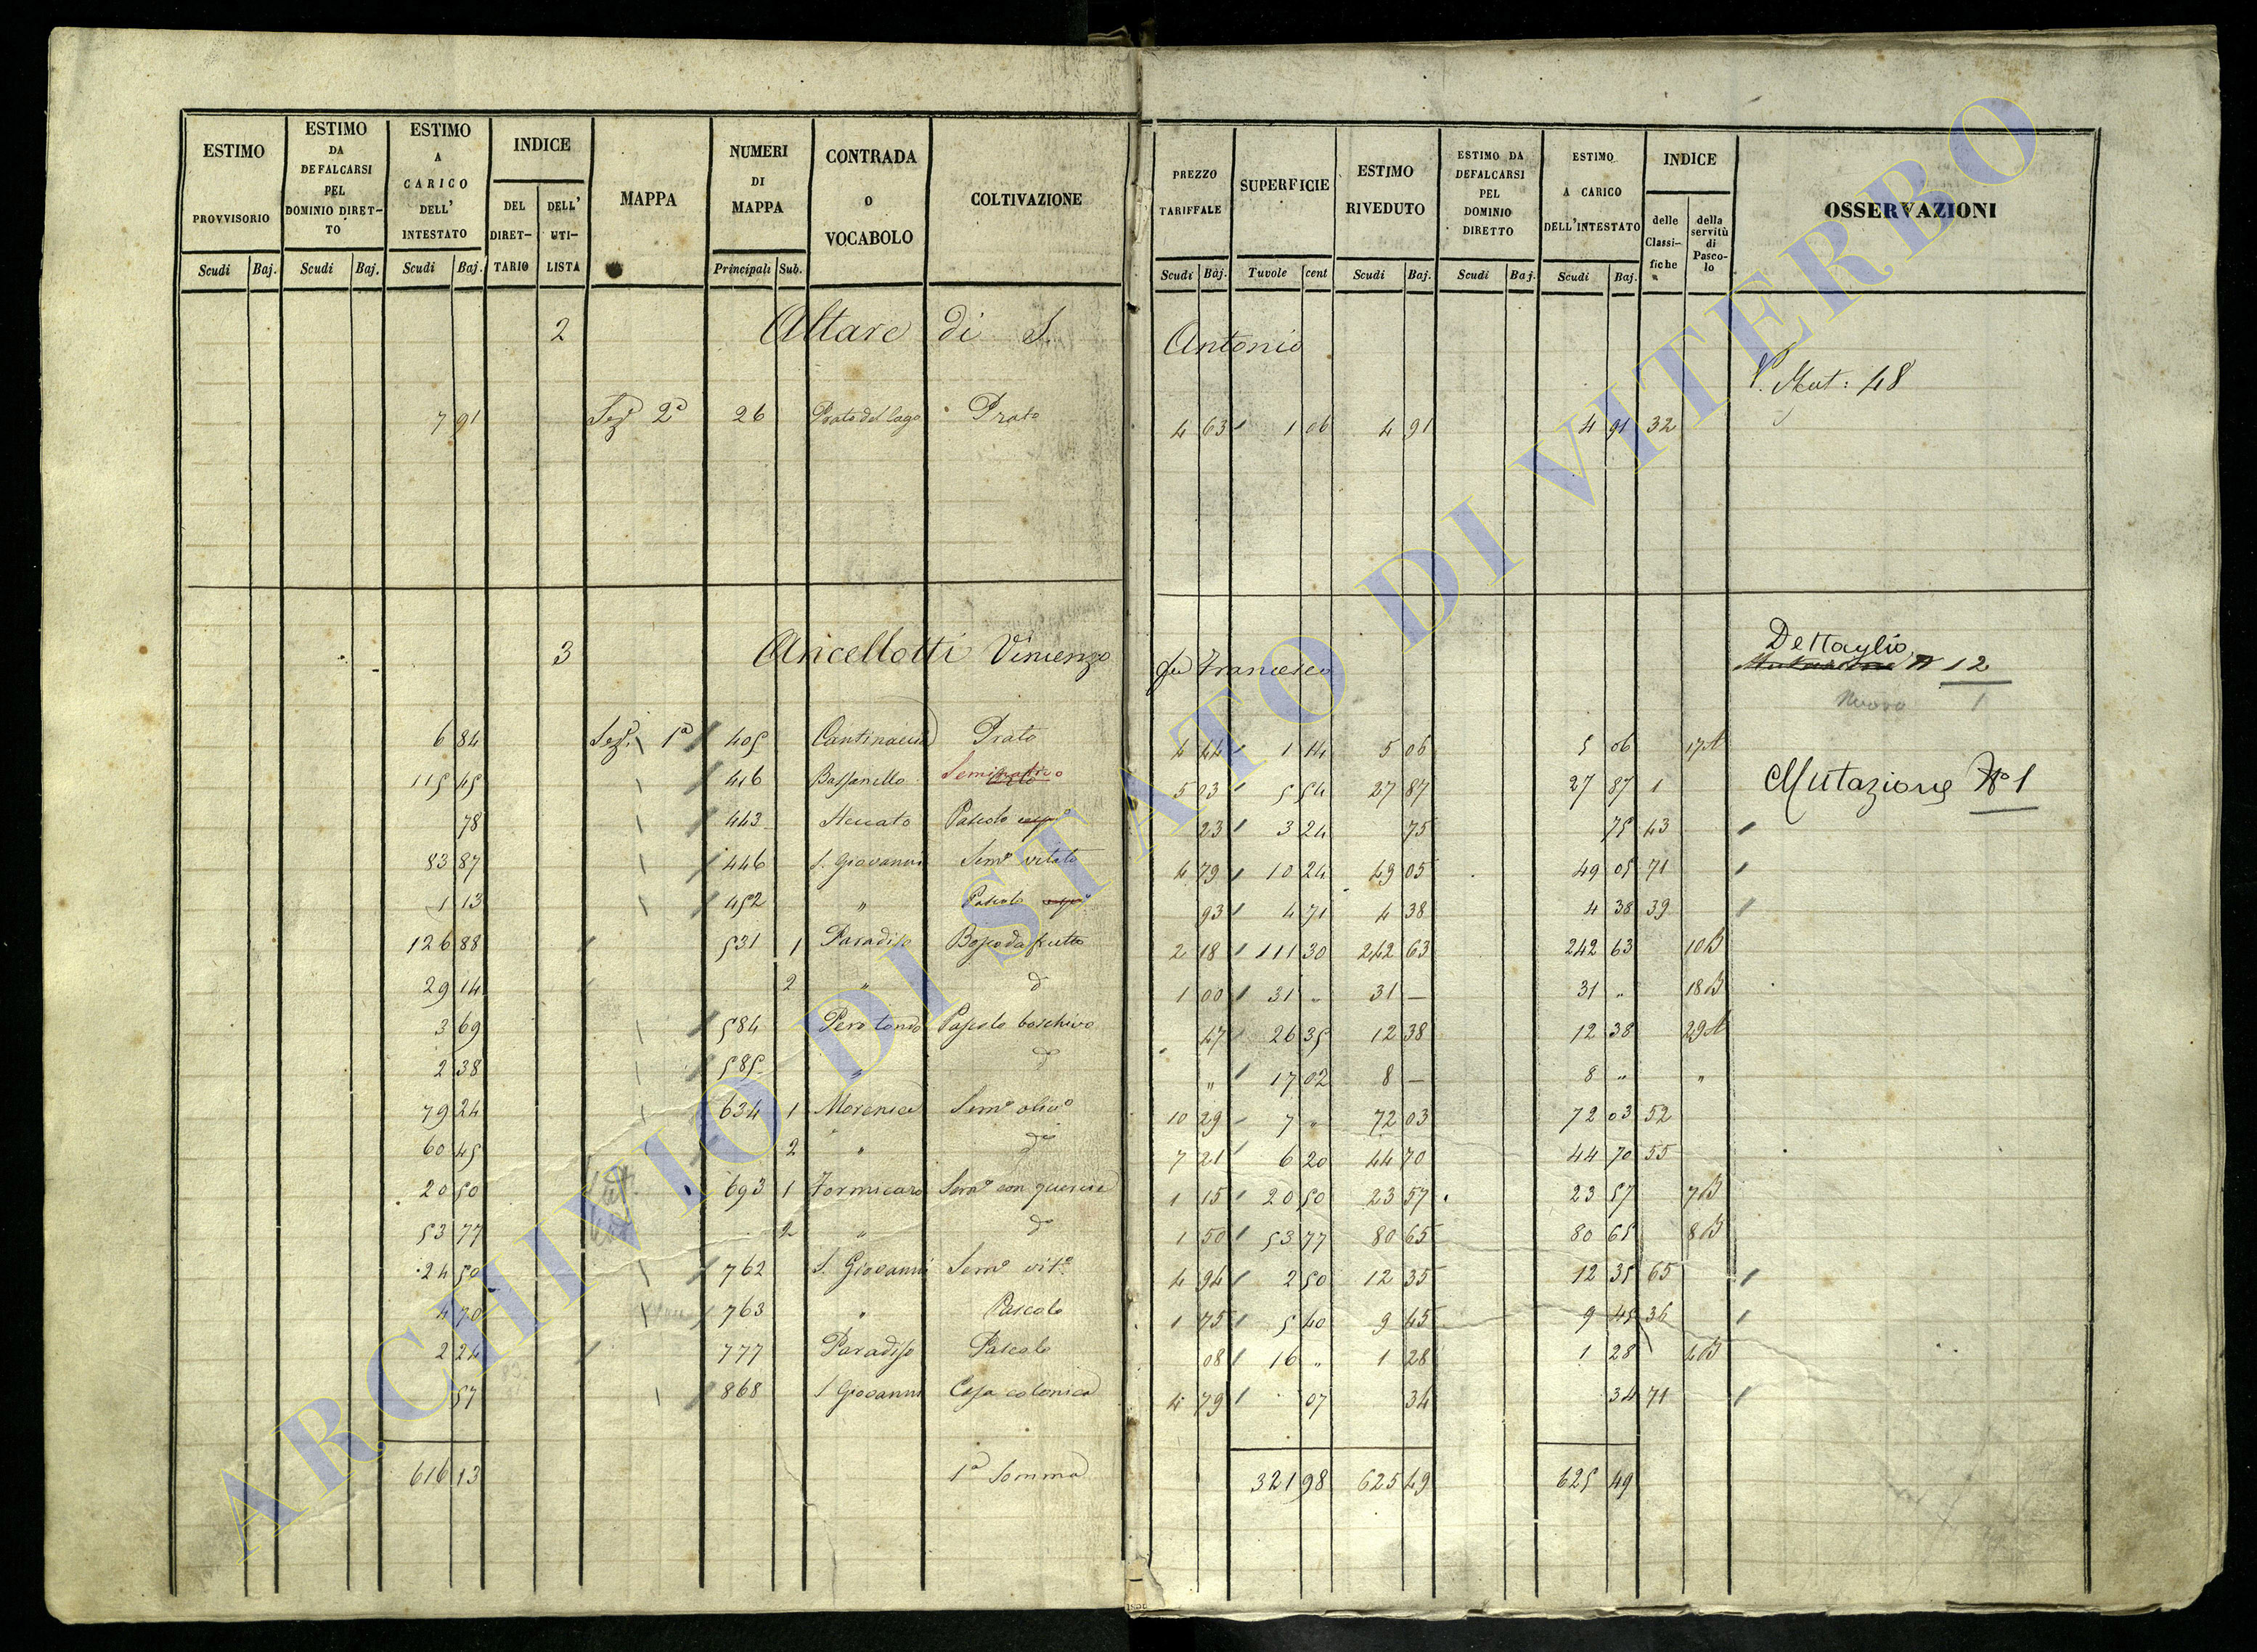 ESTIMO PROVVISORIO Scudi Baj.
ESTIMO DA DEFALCARSI PEL DOMINIO DIRET-TO Scudi Baj.
ESTIMO A CARICO DELL' INTESTATO Scudi Baj.
INDICE DEL DIRET-TARIO DELL' UTI-LISTA
MAPPA
NUMERI DI MAPPA Principali Sub.
CONTRADA O VOCABOLO
COLTIVAZIONE
PREZZO TARIFFALE Scudi Baj.
SUPERFICIE Tavole cent
ESTIMO RIVEDUTO Scudi Baj.
ESTIMO DA DEFALCARSI PEL DOMINIO DIRETTO Scudi Baj.
ESTIMO A CARICO DELL'INTESTATO Scudi Baj.
INDICE delle Classi-fiche della servitù di Pasco-lo
OSSERVAZIONI
2 Altare di S. Antonio
V. Mut: 48
7 91 Sez. 2ª 26 Prato del lago Prato 4 63 1 06 4 91 4 91 32
3 Ancellotti Vincenzo fu Francesco
Dettaglio
N 12
Nuovo 1
6 84 Sez. 1ª 405 Cantinaccia Prato 4 44 1 14 5 06 5 06 17A
115 45 416 Bassanello Seminativo 5 03 5 54 27 87 27 87 1
Mutazione Nº 1
78 443 Steccato Pascolo 23 3 24 75 75 43
83 87 446 S. Giovanni Semº vitato 4 79 10 24 49 05 49 05 71
1 13 452 " Pascolo 93 4 71 4 38 4 38 39
126 88 531 1 Paradiso Bosco da frutto 2 18 111 30 242 63 242 63 10B
29 14 2 " dº 1 00 31 " 31 — 31 " 18B
3 69 584 Pero tondo Pascolo boschivo 47 26 35 12 38 12 38 29A
2 38 585 " dº " 17 02 8 — 8 " "
79 24 634 1 Morenica Semº olivº 10 29 7 " 72 03 72 03 52
60 45 2 " dº 7 21 6 20 44 70 44 70 55
20 50 693 1 Formicaro Semº con quercie 1 15 20 50 23 57 23 57 7B
53 77 2 " dº 1 50 53 77 80 65 80 65 8B
24 50 762 S. Giovanni Semº vitº 4 94 2 50 12 35 12 35 65
4 70 763 " Pascolo 1 75 5 40 9 45 9 45 36
2 24 777 Paradiso Pascolo 08 16 " 1 28 1 28 4B
57 868 S Giovanni Casa colonica 4 79 07 34 34 71
616 13 1ª Somma 321 98 625 49 625 49
ARCHIVIO DI STATO DI VITERBO